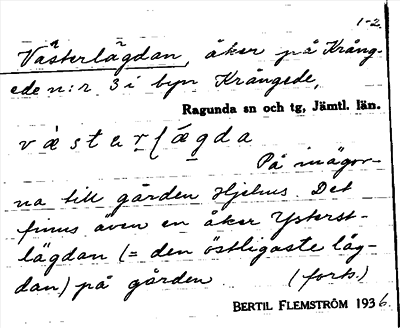 1-2.
Västerlägdan, åker på Krång-
ede n:r 3 i byn Krångede,
Ragunda sn och tg, Jämtl. län.
västerlägda
På inägor-
na till gården Hjelms. Det
finns även en åker Ysterst-
lägdan (= den östligaste läg-
dan) på gården (forts.)
BERTIL FLEMSTRÖM 1936.